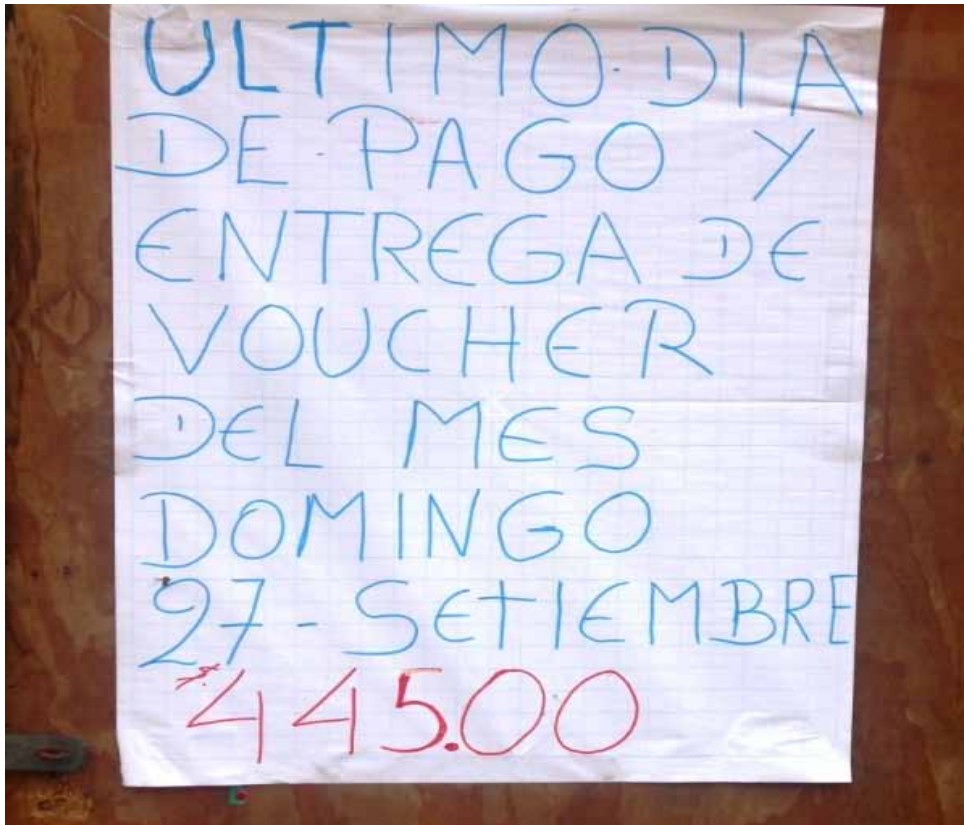 ULTIMO DIA
DE PAGO Y
ENTREGA DE
VOUCHER
DEL MES
DOMINGO
27-SETIEMBRE
445.00